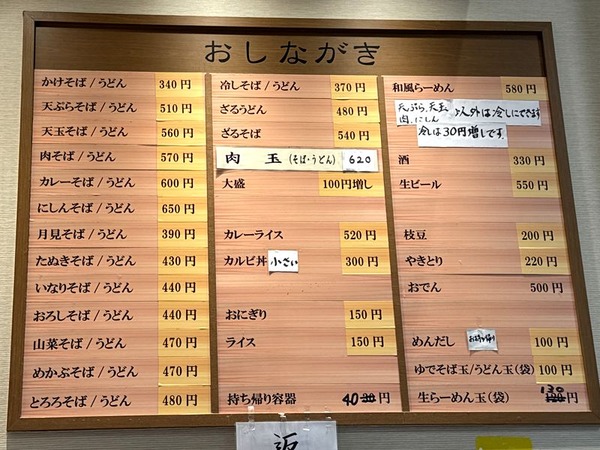 おしながき
かけそば/うどん 340円
天ぷらそば/うどん 510円
天玉そば/うどん 560円
肉そば/うどん 570円
カレーそば/うどん 600円
にしんそば/うどん 650円
月見そば/うどん 390円
たぬきそば/うどん 430円
いなりそば/うどん 440円
おろしそば/うどん 440円
山菜そば/うどん 470円
めかぶそば/うどん 470円
とろろそば/うどん 480円
冷しそば/うどん 370円
ざるうどん 480円
ざるそば 540円
肉 玉 (そば・うどん) 620
大盛 100円増し
カレーライス 520円
カルビ丼 小さい 300円
おにぎり 150円
ライス 150円
持ち帰り容器 40 30 円
和風らーめん 580円
天ぷら、天玉
肉、にしん 以外は冷しにできます
冷しは30円増しです。
酒 330円
生ビール 550円
枝豆 200円
やきとり 220円
おでん 500円
めんだし 100円
ゆでそば玉/うどん玉(袋) 100円
生らーめん玉(袋) 130 120円
返